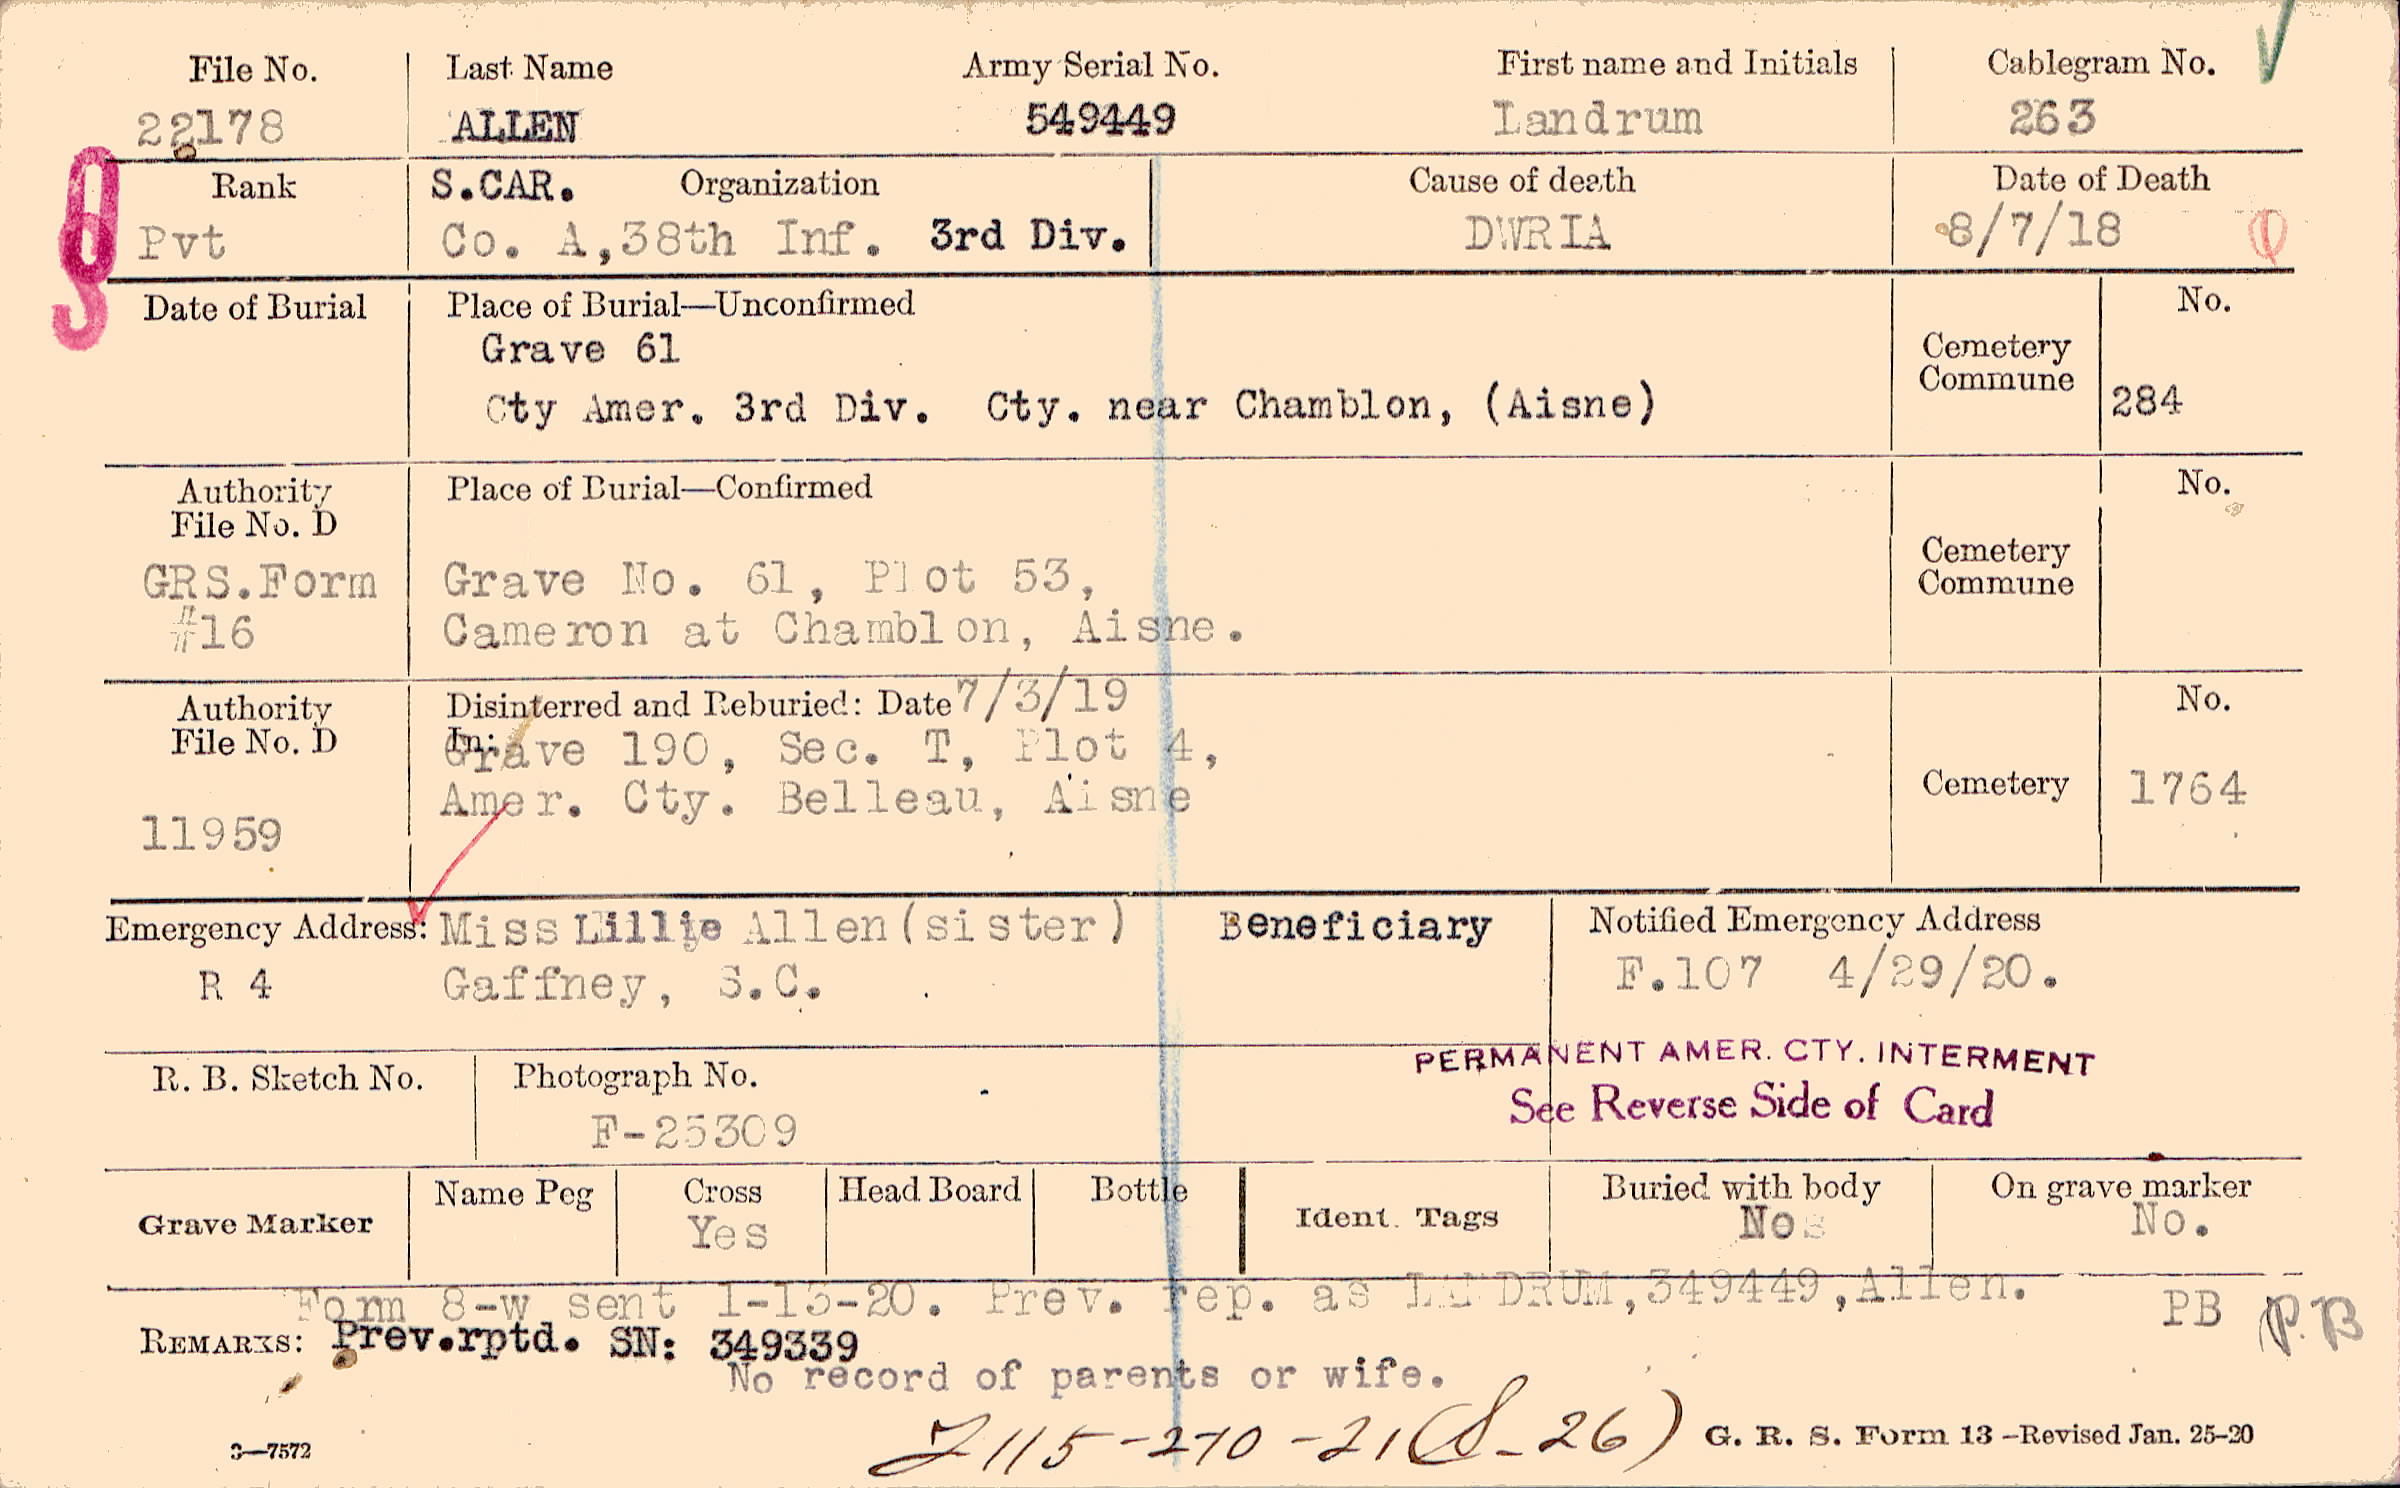 File No. Last Name Army Serial No. First name and Initials Cablegram No.
22178 ALLEN 549449 Landrum 263
Rank S.CAR. Organization Cause of death Date of Death
Pvt Co. A,38th Inf. 3rd Div. DWRIA 8/7/18
Date of Burial Place of Burial—Unconfirmed No.
Grave 61
Cemetery
Commune
Cty Amer. 3rd Div. Cty. near Chamblon, (Aisne) 284
Authority Place of Burial—Confirmed No.
File No. D
Cemetery
Commune
GRS.Form Grave No. 61, Plot 53,
#16 Cameron at Chamblon, Aisne.
Authority Disinterred and Reburied: Date 7/3/19 No.
File No. D In:
Grave 190, Sec. T, Plot 4,
Amer. Cty. Belleau, Aisne Cemetery 1764
11959
Emergency Address: Miss Lillie Allen(sister) Beneficiary Notified Emergency Address
R 4 Gaffney, S.C. F.107 4/29/20.
PERMANENT AMER. CTY. INTERMENT
R. B. Sketch No. Photograph No. See Reverse Side of Card
F-25309
Name Peg Cross Head Board Bottle Buried with body On grave marker
Grave Marker Yes Ident. Tags No No.
Form 8-w sent 1-13-20. Prev. rep. as LANDRUM,349449,Allen. PB P.B
REMARKS: Prev.rptd. SN: 349339
No record of parents or wife.
115-270-21(S-26) G. R. S. Form 13—Revised Jan. 25-20
3—7572